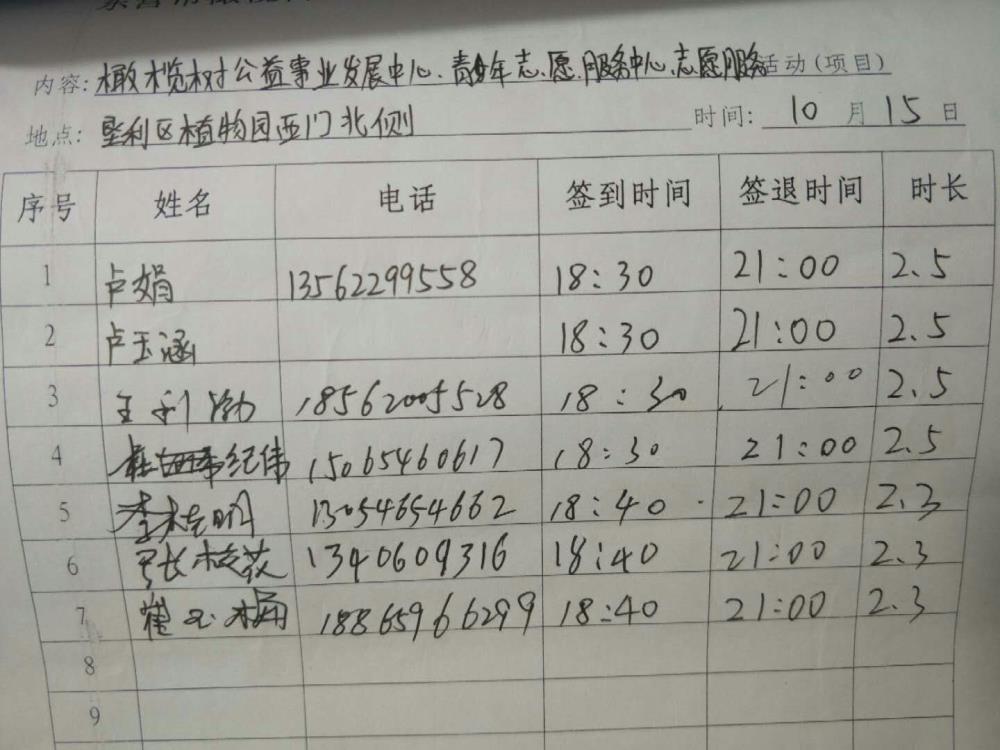 内容:橄榄树公益事业发展中心、青少年志愿服务中心志愿服务活动(项目)
地点:垦利区植物园西门北侧 时间: 10 月 15 日
序号 姓名 电话 签到时间 签退时间 时长
1 卢娟 13562299558 18:30 21:00 2.5
2 卢玉涵 18:30 21:00 2.5
3 王利渤 18562005528 18:30 21:00 2.5
4 纪伟 15065460617 18:30 21:00 2.5
5 李明 13054654662 18:40 21:00 2.3
6 张梅 1340609316 18:40 21:00 2.3
7 崔梅 18865966299 18:40 21:00 2.3
8
9